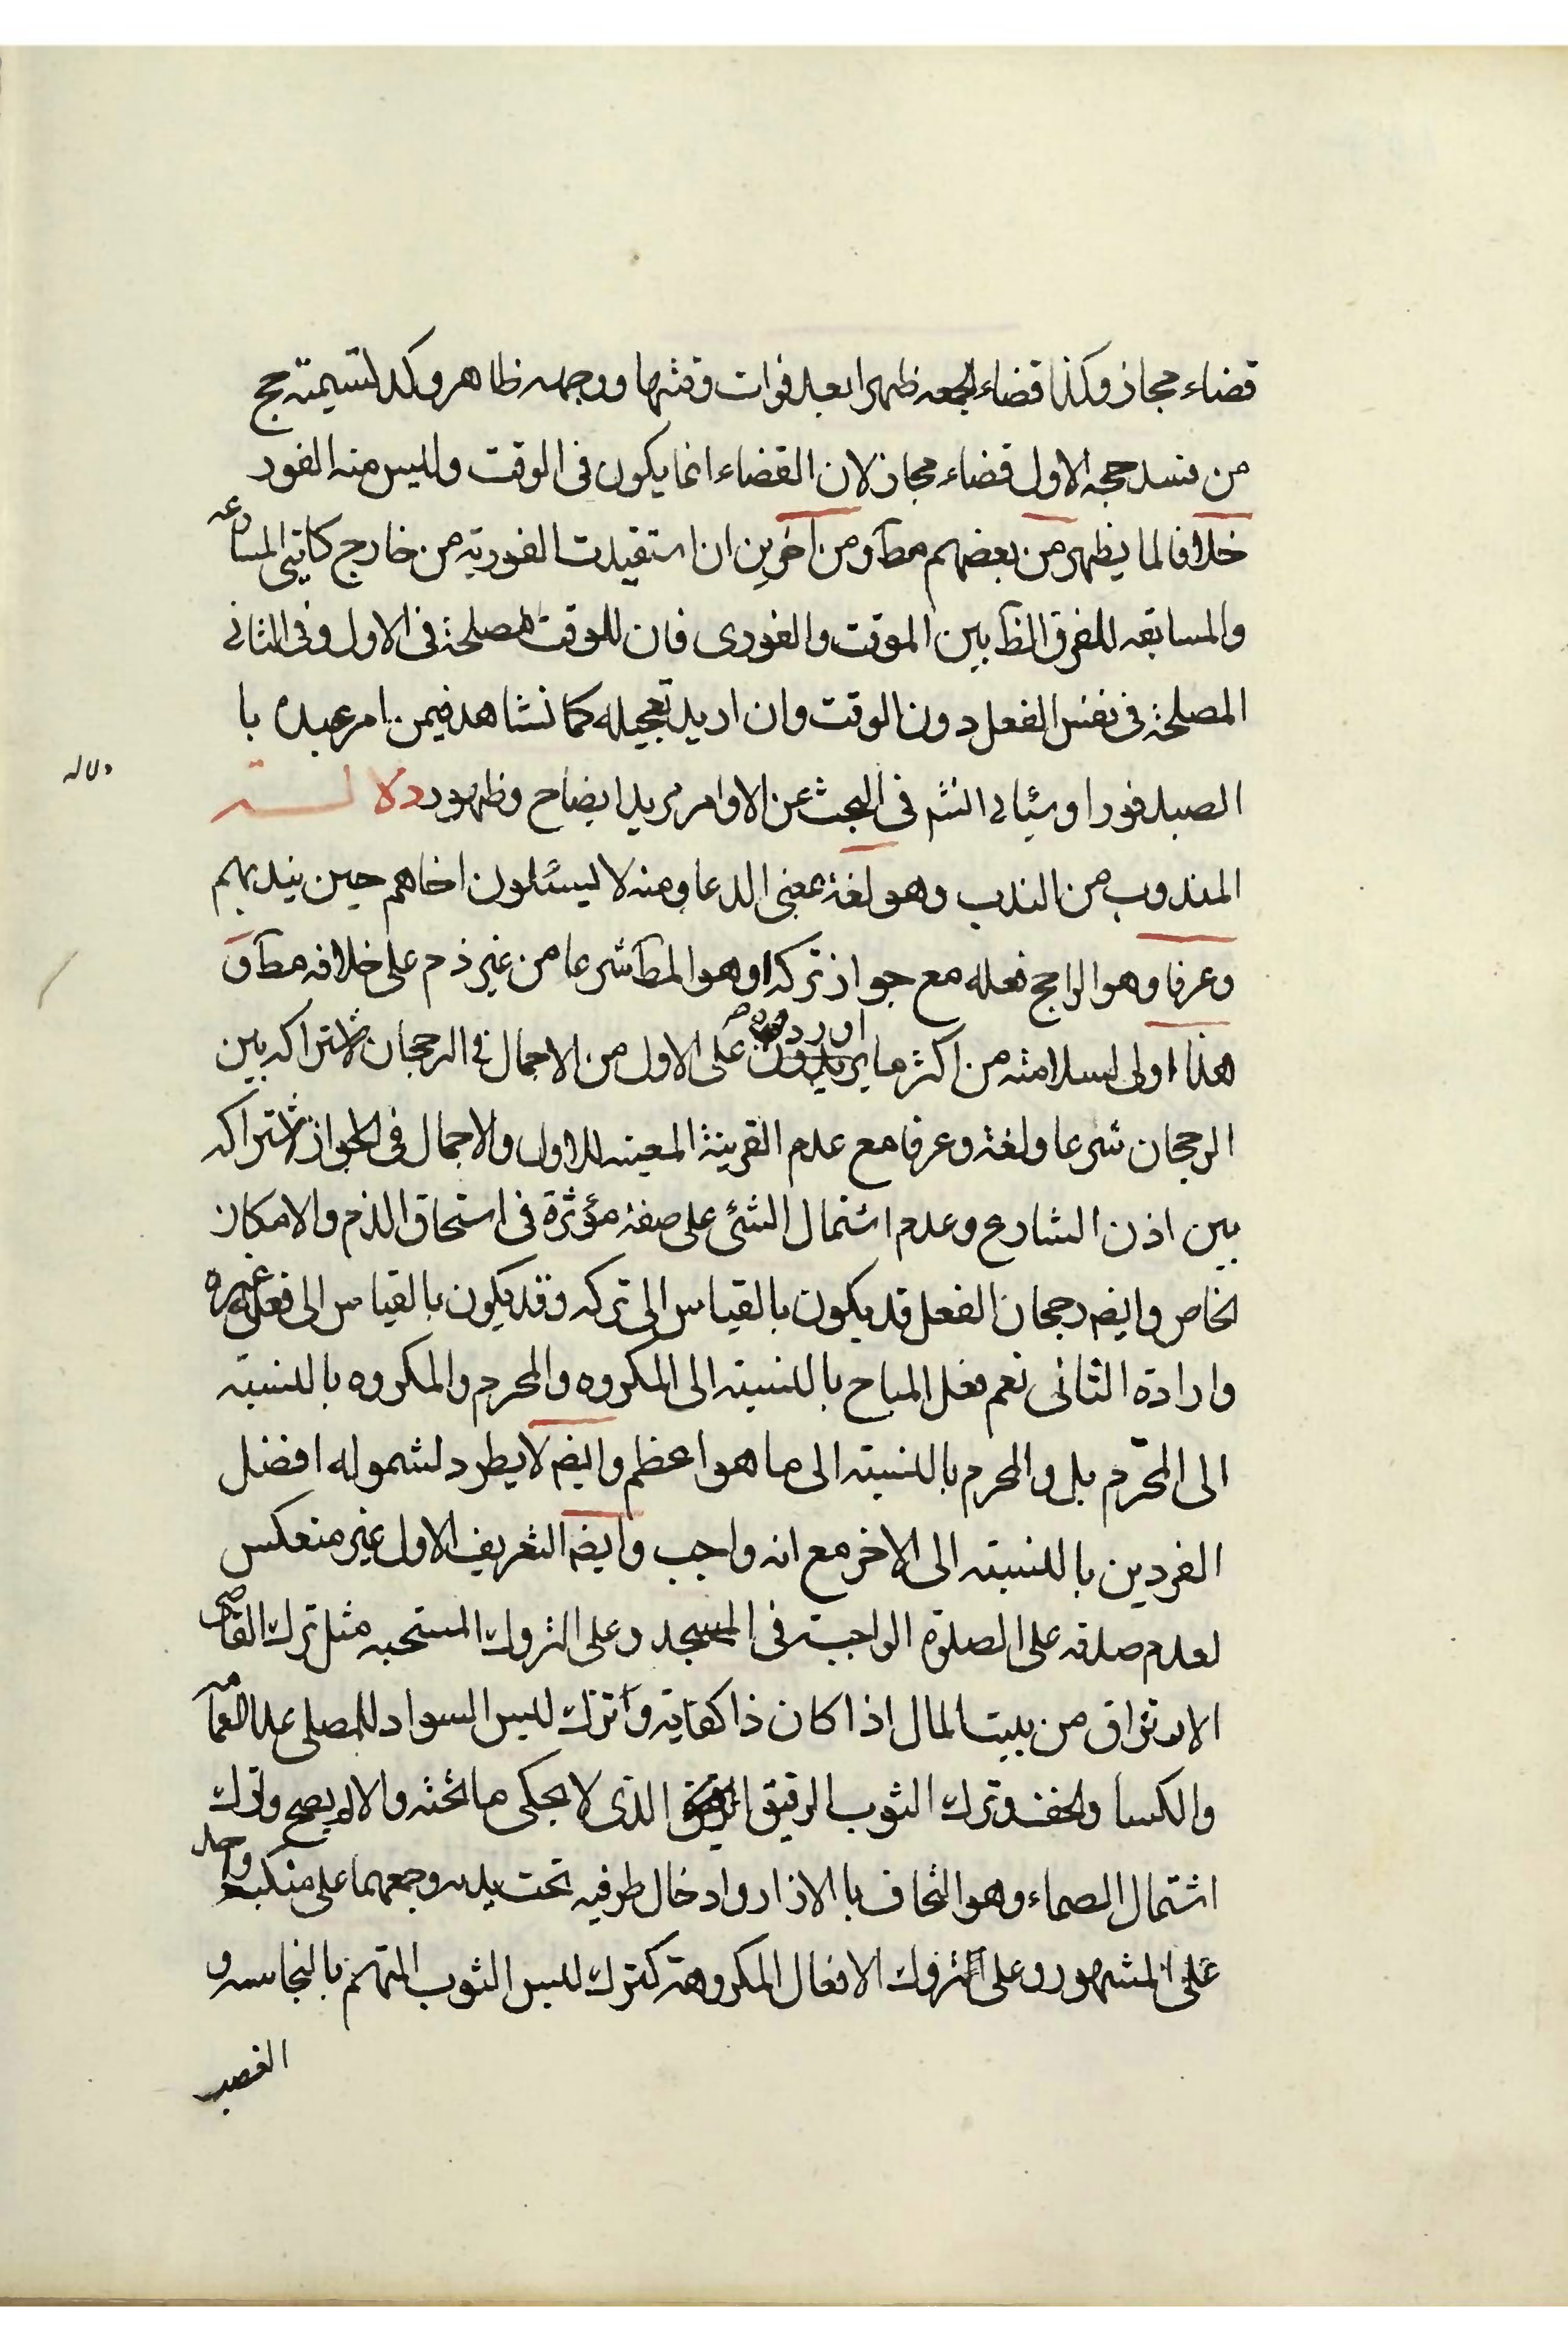 قضاء مجاز وكذا قضاء الجمعه ظهرا بعد فوات وقتها ووجهه ظاهر وكذا تسيمته حج
من فسد حجه الاول قضاء مجاز لان القضاء انما يكون فى الوقت وليس منه الفور
خلافا لما يظهر من بعضهم مطآ ومن آخرين ان استفيدت الفورية من خارج كايتى المسارعه
والمسابقه للفرق الظآ بين الموقت والفورى فان للوقت مصلحة فى الاول وفى الثانى
المصلحة فى نفس الفعل دون الوقت وان اريد تعجيله كما نشاهد فيمن امر عبده با
لصيد فورا وسياتى انشم فى البحث عن الاوامر مزيد ايضاح وظهور دلالته
دلاله
المندوب من الندب وهو لغة بمعنى الدعا ومنه لا يسئلون اخاهم حين يندبهم
وعرفا وهو الراجح فعله مع جواز تركه او هو المطآ شرعا من غير ذم على خلافه مطآ و
هذا اولى لسلامته من اكثر ما اوردوه على الاول من الاجمال فى الرجحان لاشتراكه بين
الرجحان شرعا ولغة وعرفا مع عدم القرينة المعينه للاول والاجمال فى الجواز لاشتراكه
بين اذن الشارع وعدم اشتمال الشئ على صفة مؤثرة فى استحاق الذم والامكان
الخاص وايضم رجحان الفعل قد يكون بالقياس الى تركه وقد يكون بالقياس الى فعل غيره
وارادة الثانى نعم فعل المباح بالنسبته الى المكروه والمحرم والمكروه بالنسبته
الى المحرّم بل والمحرم بالنسبته الى ما هو اعظم وايضم لا يطرد لشموله افضل
الفردين بالنسبته الى الاخر مع انه واجب وايضم التعريف الاول غير منعكس
لعدم صدقه على الصلوة الواجبته فى المسجد وعلى التروك المستحبه مثل ترك القاضى
الارتزاق من بيت المال اذا كان ذا كفايته وترك لبس السواد للمصلى عدا العمامه
والكسا والخف وترك الثوب الرقيق الذى لا يحكى ما تحته والا لم يصح وترك
اشتمال الصماء وهو التحاف بالازار وادخال طرفيه تحت يده وجمعهما على منكب واحد
على المشهور وعلى التروك الافعال المكروهته كترك لبس الثوب المتهم بالنجاسه و
الغصب